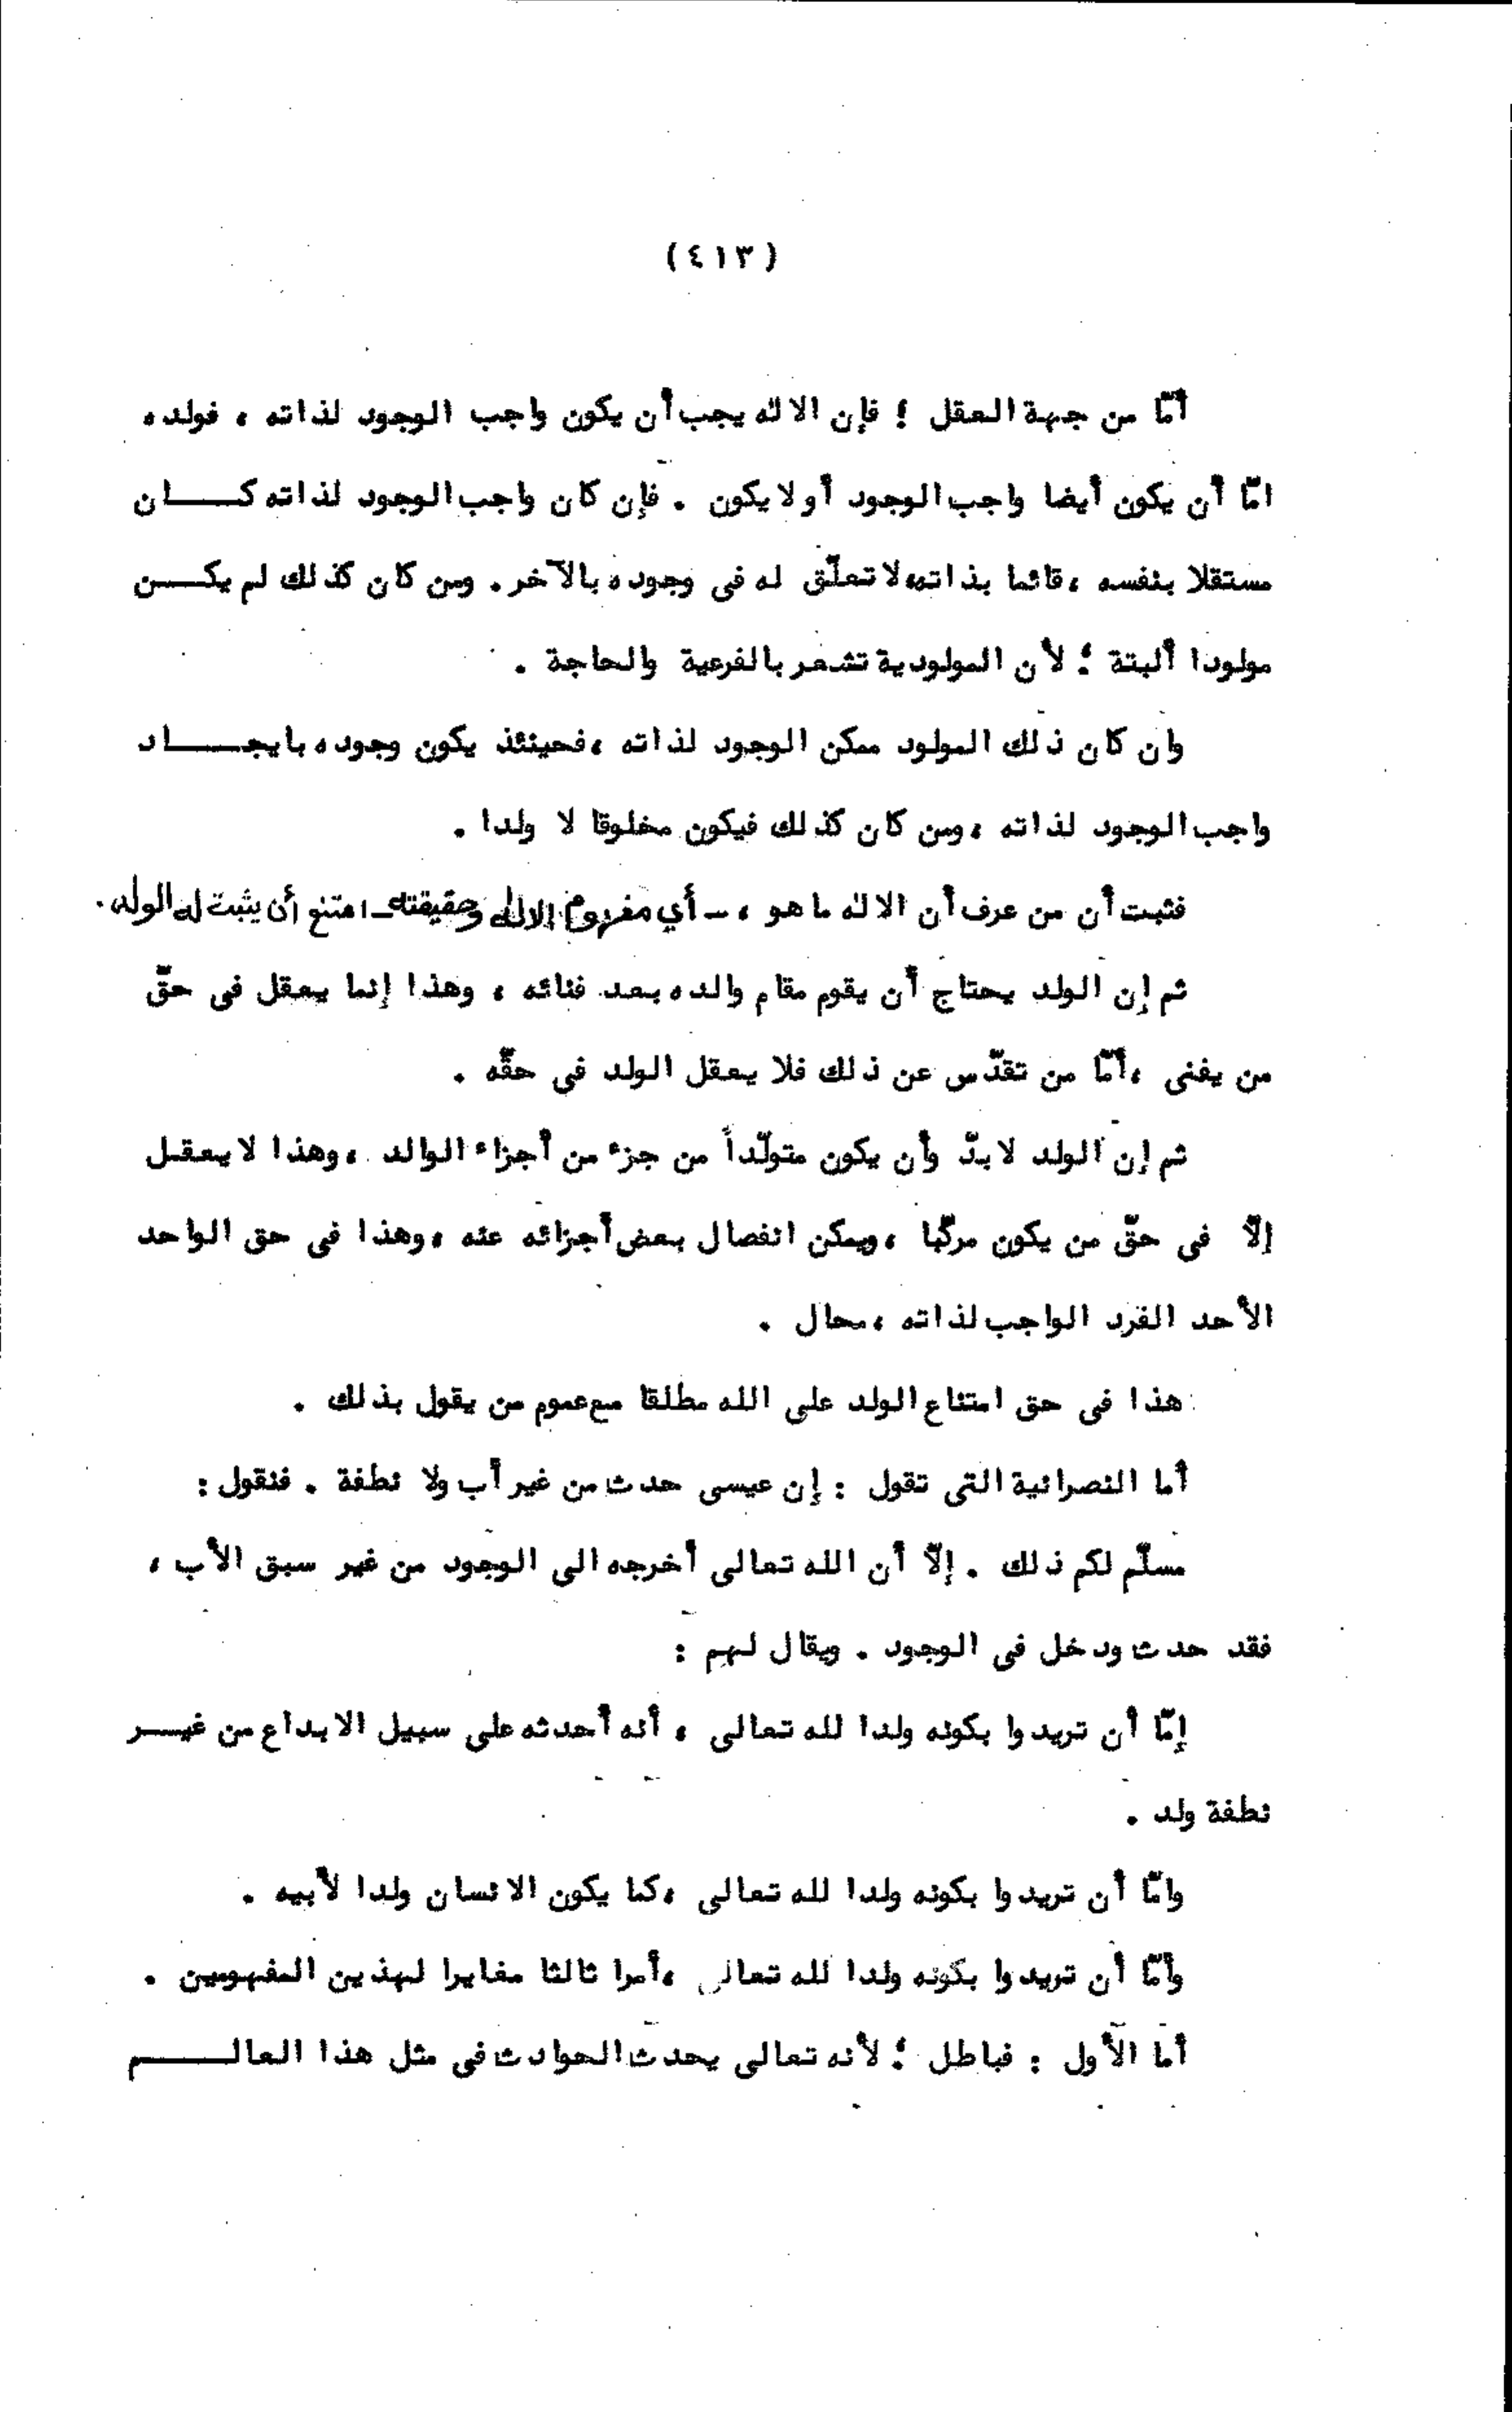 (٤١٣)
أمّا من جهة العقل ؛ فإن الاله يجب أن يكون واجب الوجود لذاته ، فولده
امّا أن يكون أيضا واجب الوجود أو لا يكون . فإن كان واجب الوجود لذاته كـــان
مستقلا بنفسه ،قائما بذاته،لا تعلّق له فى وجوده بالآخر . ومن كان كذلك لم يكـــن
مولودا ألبتة ؛ لأن المولودية تشعر بالفرعية والحاجة .
وان كان ذلك المولود ممكن الوجود لذاته ،فحينئذ يكون وجوده بايجـــاد
واجب الوجود لذاته ،ومن كان كذلك فيكون مخلوقا لا ولدا .
فثبت أن من عرف أن الاله ما هو ، ـ أي مفهوم الاله وحقيقته ـ امتنع أن يثبت له الولد .
ثم إن الولد يحتاج أن يقوم مقام والده بعد فنائه ، وهذا إنما يعقل فى حقّ
من يفنى ،أمّا من تقدّس عن ذلك فلا يعقل الولد فى حقّه .
ثم إن الولد لا بدّ وأن يكون متولّداً من جزء من أجزاء الوالد ،وهذا لا يعقل
إلّا فى حقّ من يكون مركّبا ،ويمكن انفصال بعض أجزائه عنه ،وهذا فى حق الواحد
الأحد الفرد الواجب لذاته ،محال .
هذا فى حق امتناع الولد على الله مطلقا مع عموم من يقول بذلك .
أما النصرانية التى تقول : إن عيسى حدث من غير أب ولا نطفة . فنقول :
مسلّم لكم ذلك . إلّا أن الله تعالى أخرجه الى الوجود من غير سبق الأب ،
فقد حدث ودخل فى الوجود . ويقال لهم :
إمّا أن تريدوا بكونه ولدا لله تعالى ، أنه أحدثه على سبيل الابداع من غيـــر
نطفة ولد .
وامّا أن تريدوا بكونه ولدا لله تعالى ،كما يكون الانسان ولدا لأبيه .
وأمّا أن تريدوا بكونه ولدا لله تعالى ،أمرا ثالثا مغايرا لهذين المفهومين .
أما الأول : فباطل ؛ لأنه تعالى يحدث الحوادث فى مثل هذا العالـــم